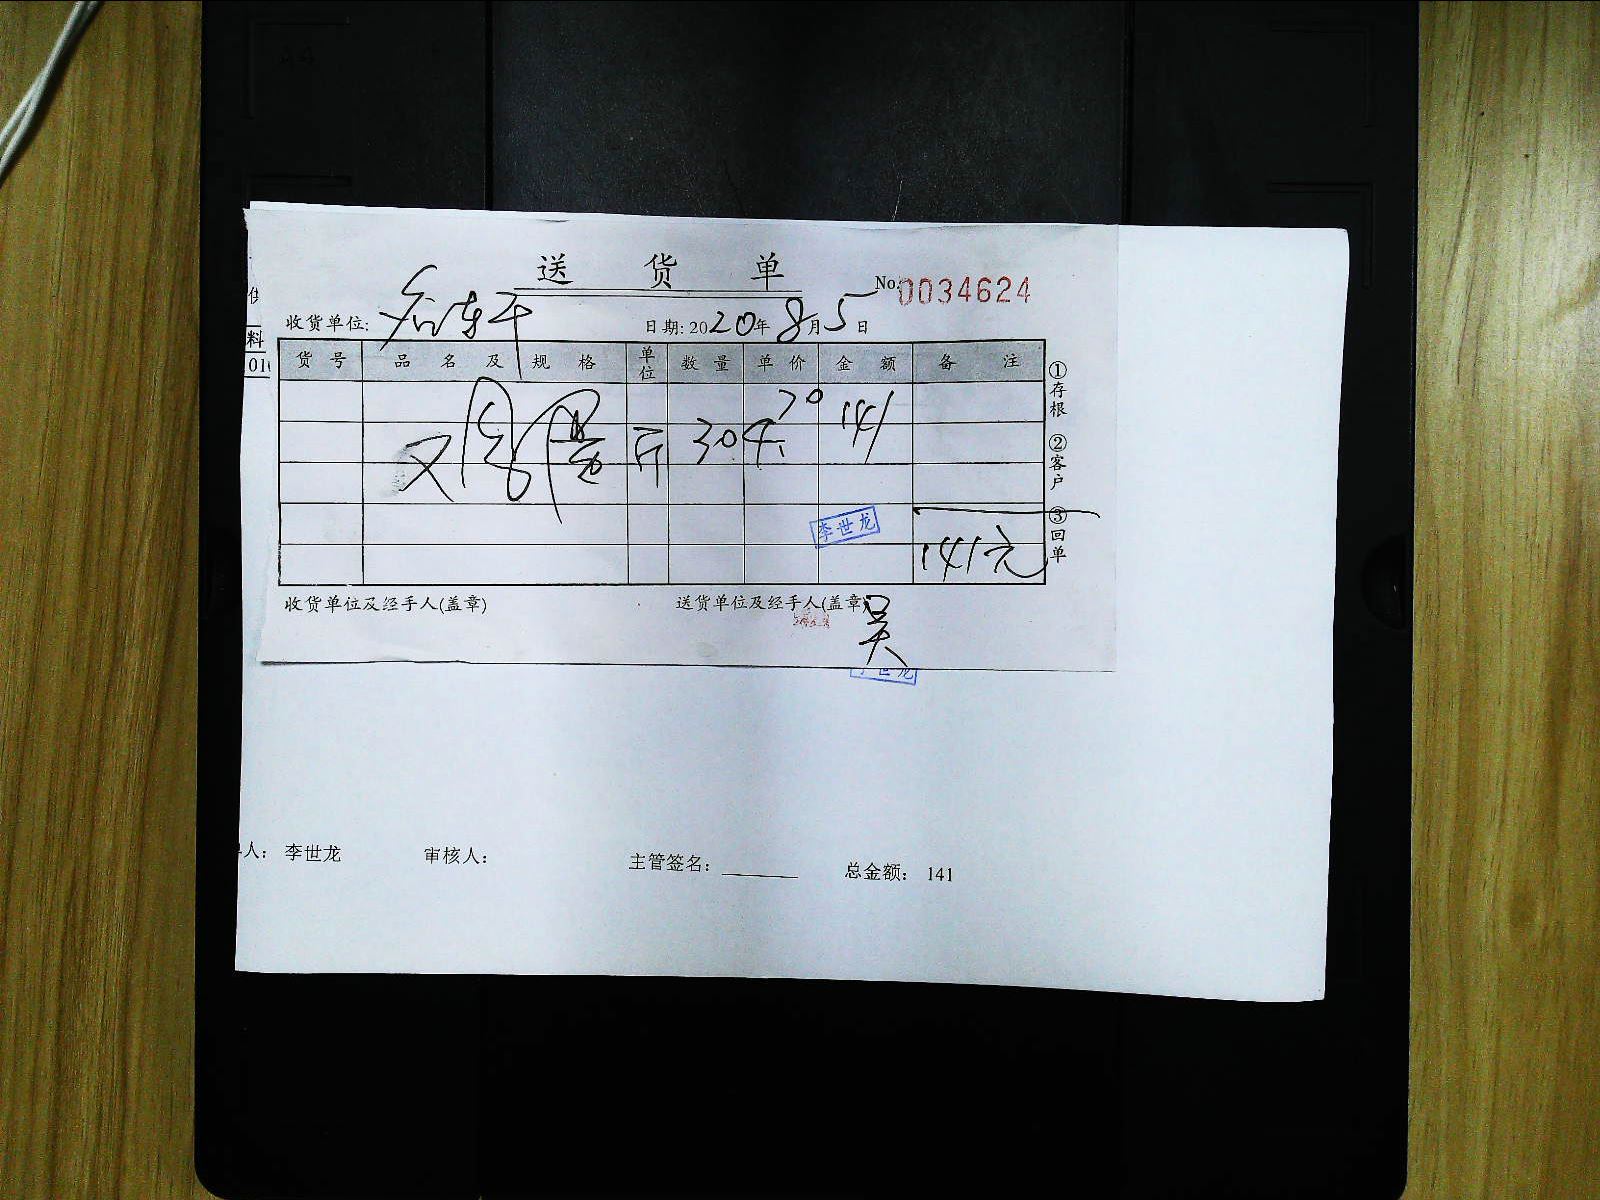 送 货 单
No. 0034624
收货单位:
日期: 2020年 8月 5日
货 号 品 名 及 规 格 单位 数 量 单 价 金 额 备 注
斤 30 4.70 141
李世龙
141元
①存根 ②客户 ③回单
收货单位及经手人(盖章) 送货单位及经手人(盖章)
吴
李世龙
料
010
人： 李世龙 审核人： 主管签名： 总金额： 141